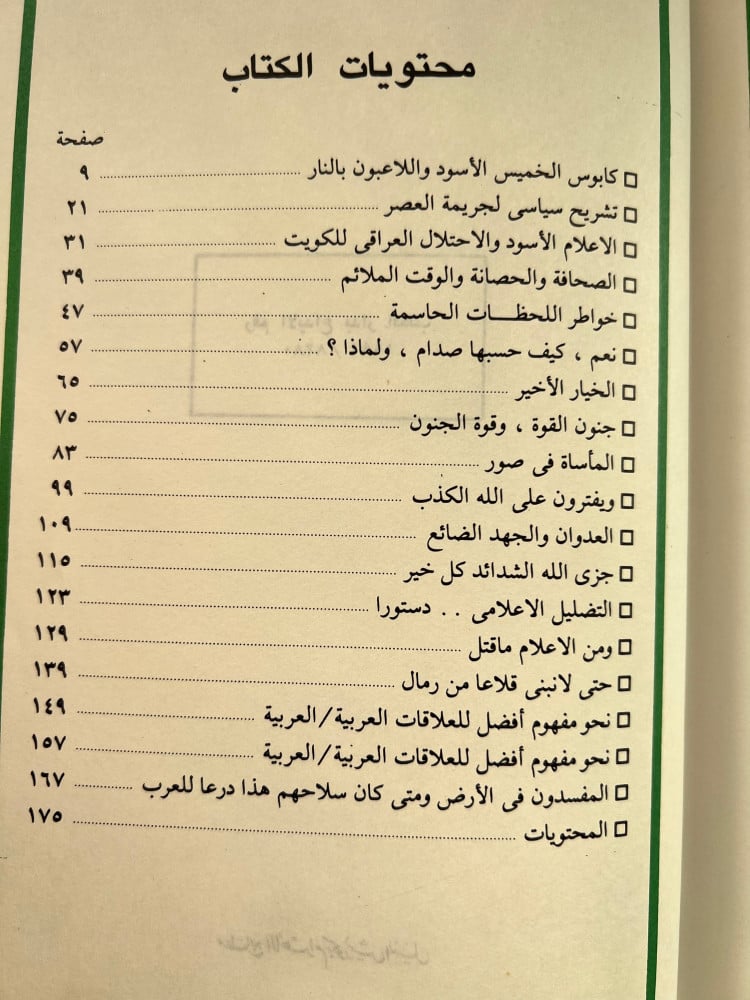 محتويات الكتاب
صفحة
□ كابوس الخميس الأسود واللاعبون بالنار ........ ٩
□ تشريح سياسى لجريمة العصر ........ ٢١
□ الاعلام الأسود والاحتلال العراقى للكويت ........ ٣١
□ الصحافة والحصانة والوقت الملائم ........ ٣٩
□ خواطر اللحظـــات الحاسمة ........ ٤٧
□ نعم ، كيف حسبها صدام ، ولماذا ؟ ........ ٥٧
□ الخيار الأخير ........ ٦٥
□ جنون القوة ، وقوة الجنون ........ ٧٥
□ المأساة فى صور ........ ٨٣
□ ويفترون على الله الكذب ........ ٩٩
□ العدوان والجهد الضائع ........ ١٠٩
□ جزى الله الشدائد كل خير ........ ١١٥
□ التضليل الاعلامى . . دستورا ........ ١٢٣
□ ومن الاعلام ماقتل ........ ١٢٩
□ حتى لانبنى قلاعا من رمال ........ ١٣٩
□ نحو مفهوم أفضل للعلاقات العربية/العربية ........ ١٤٩
□ نحو مفهوم أفضل للعلاقات العربية/العربية ........ ١٥٧
□ المفسدون فى الأرض ومتى كان سلاحهم هذا درعا للعرب ........ ١٦٧
□ المحتويات ........ ١٧٥